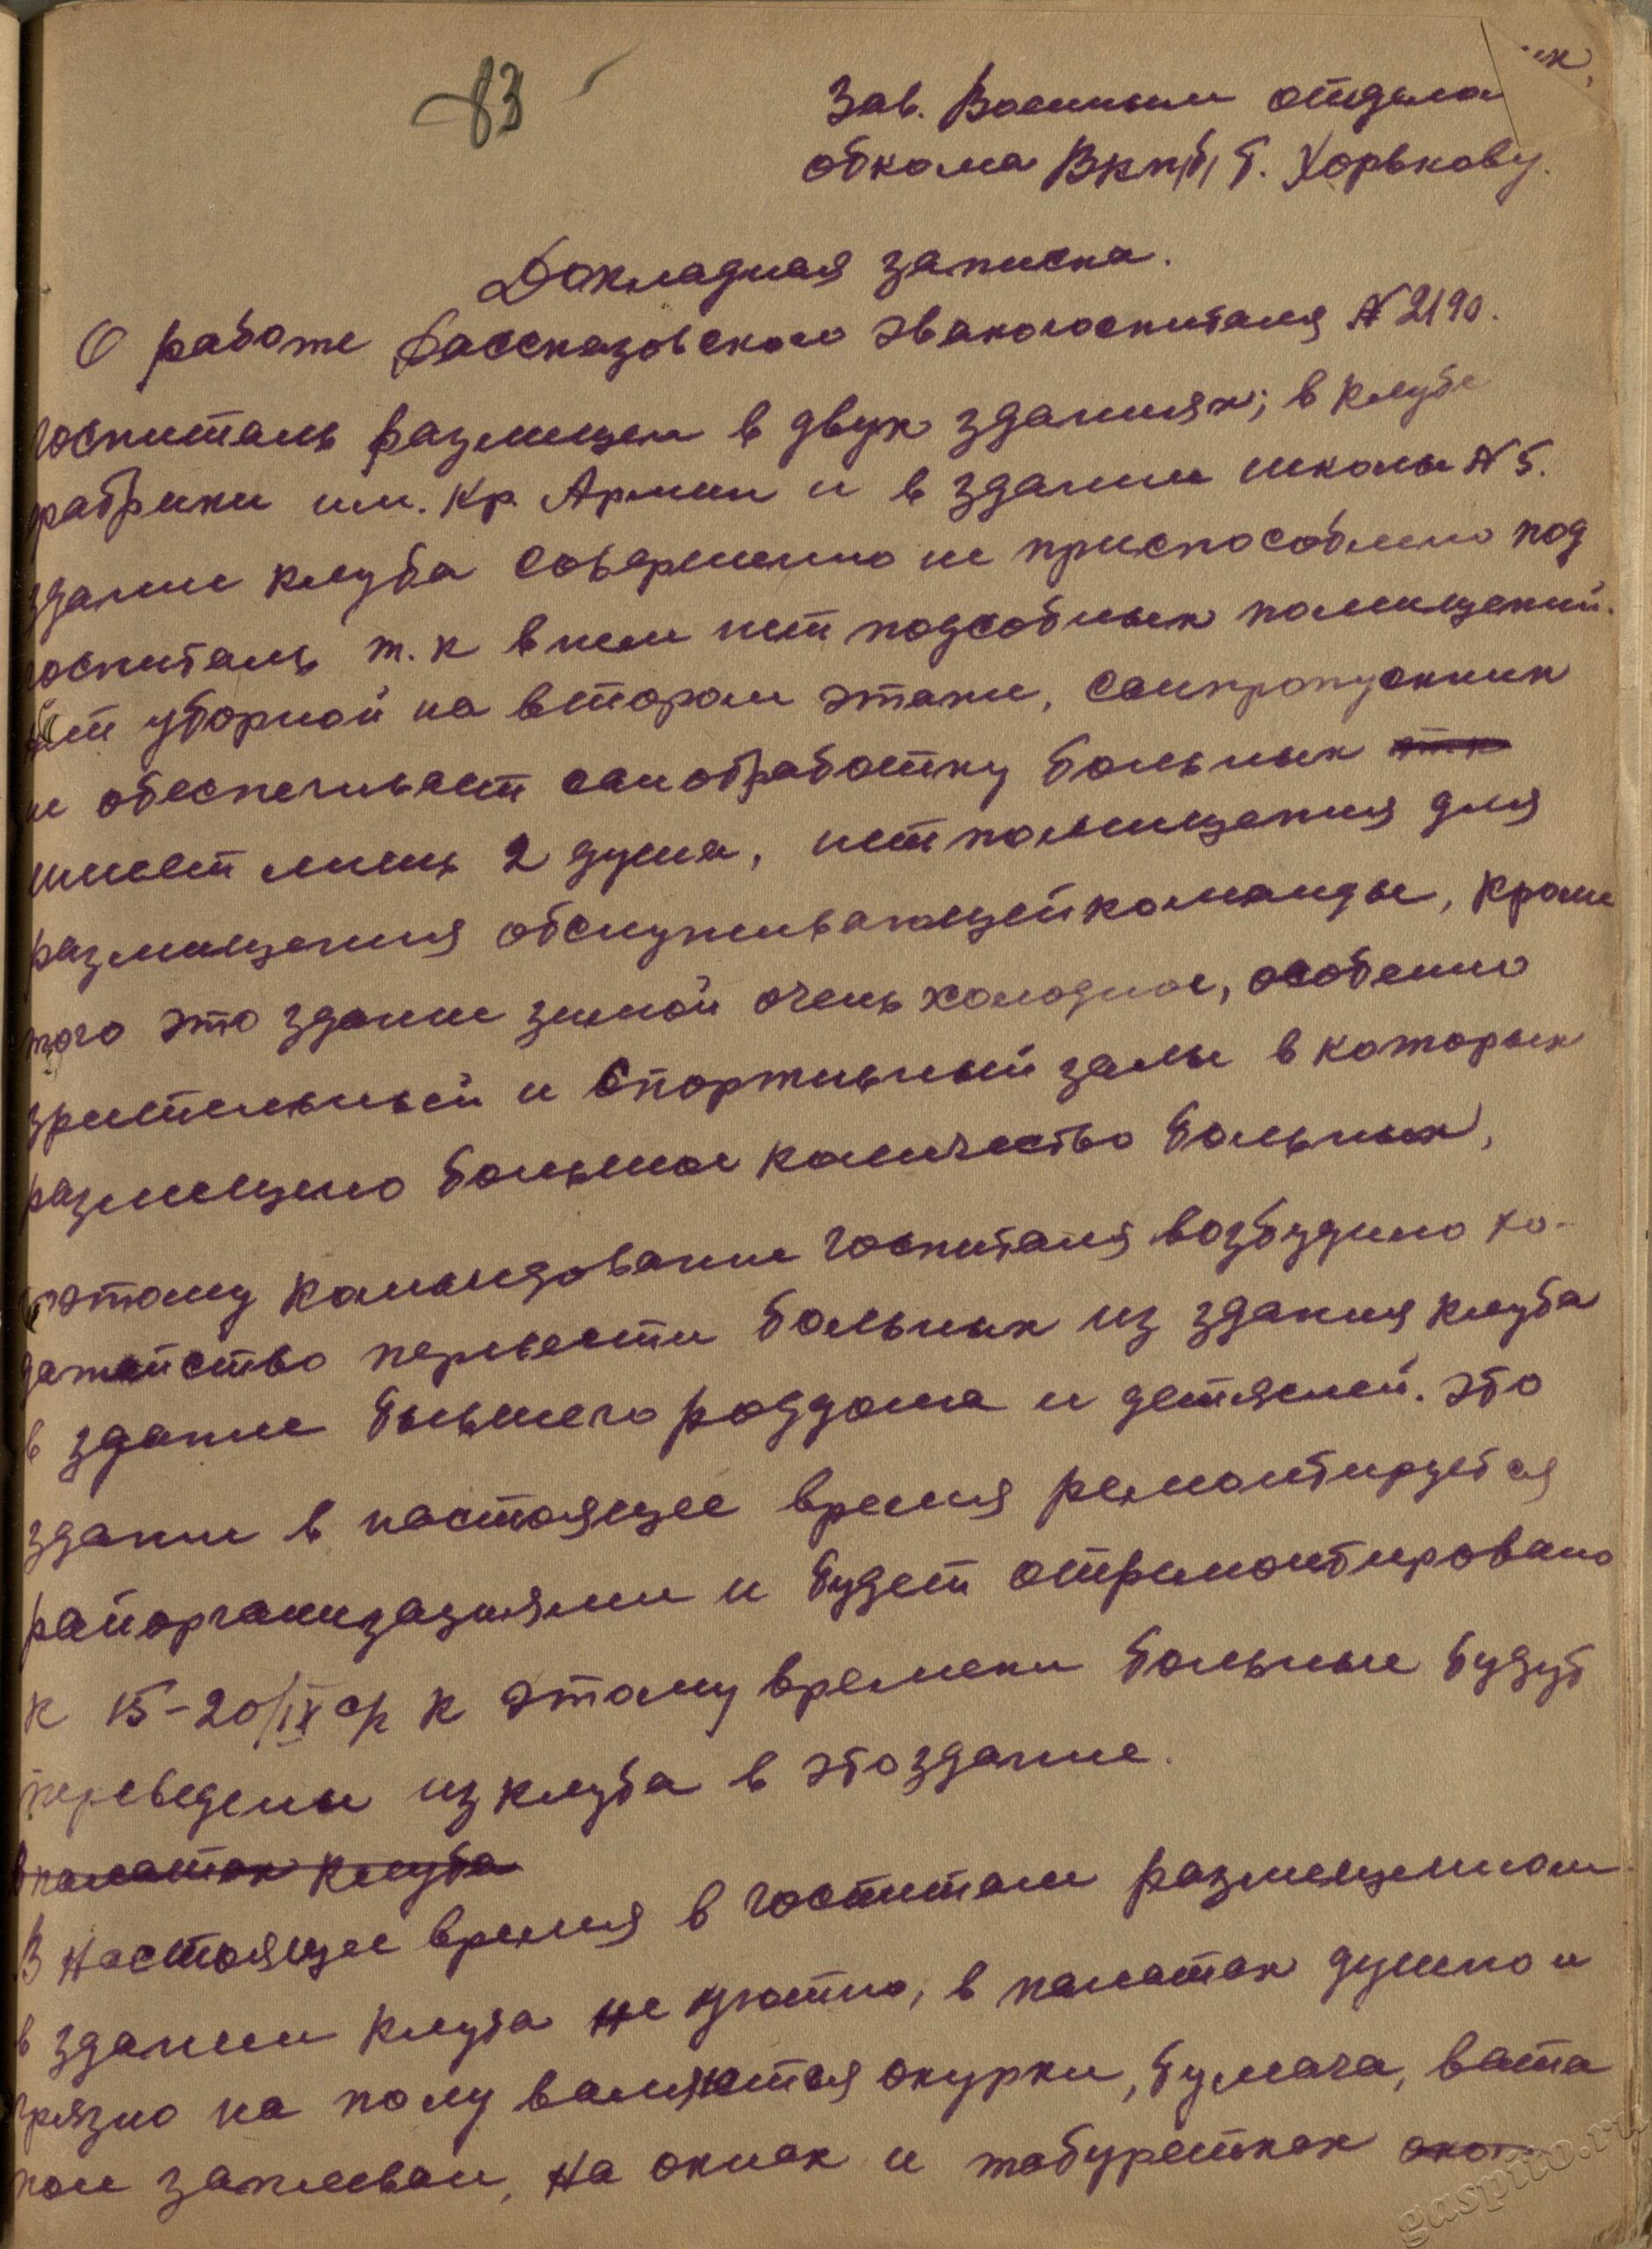 83
Зав. Военным отдела
обкома ВКП/б/ т. Хорькову.
Докладная записка.
О работе Рассказовского эвакогоспиталя № 2190.
госпиталь размещен в двух зданиях; в клубе
фабрики им. Кр. Армии и в здании школы № 5.
здание клуба совершенно не приспособлено под
госпиталь т.к в нем нет подсобных помещений.
нет уборной на втором этаже, санпропускник
не обеспечивает санобработку больных
имеет лишь 2 душа, нет помещения для
размещения обслуживающей команды, кроме
того это здание зимой очень холодное, особенно
зрительный и спортивный залы в которых
размещено большое количество больных,
поэтому командование госпиталя возбудило хо-
датайство перевести больных из здания клуба
в здание бывшего роддома и детяслей. Это
здание в настоящее время ремонтируется
райорганизациями и будет отремонтировано
к 15-20/IX с/г к этому времени больные будут
переведены из клуба в это здание.
в палатах клуба
В настоящее время в госпитали размещенном
в здании клуба не уютно, в палатах душно и
грязно на полу валяются окурки, бумага, вата
пол заплеван, на окнах и табуретках око
gaspito.ru